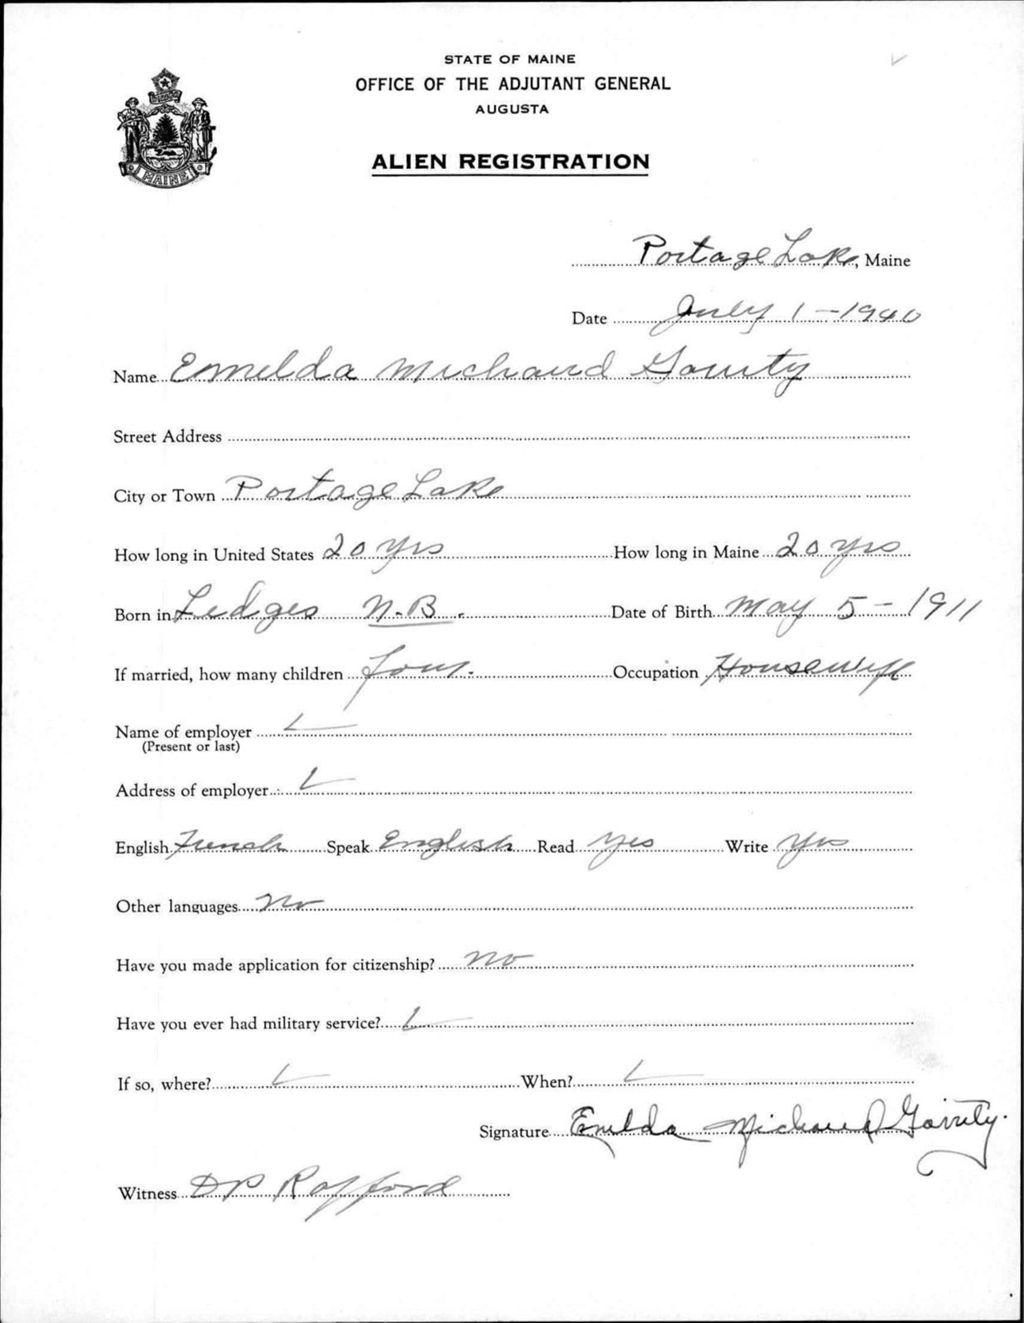 STATE OF MAINE
OFFICE OF THE ADJUTANT GENERAL
AUGUSTA
MAINE
ALIEN REGISTRATION
Portage Lake, Maine
Date July 1-1940
Name Emelda Michaud Garrity
Street Address
City or Town Portage Lake
How long in United States 20 yrs How long in Maine 20 yrs
Born in Ledges N.B. Date of Birth May 5-1911
If married, how many children four. Occupation Housewife
Name of employer
(Present or last)
Address of employer
English French Speak English Read Yes Write Yes
Other languages No
Have you made application for citizenship? No
Have you ever had military service?
If so, where? When?
Signature Emelda Michaud Garrity.
Witness DP Rafford